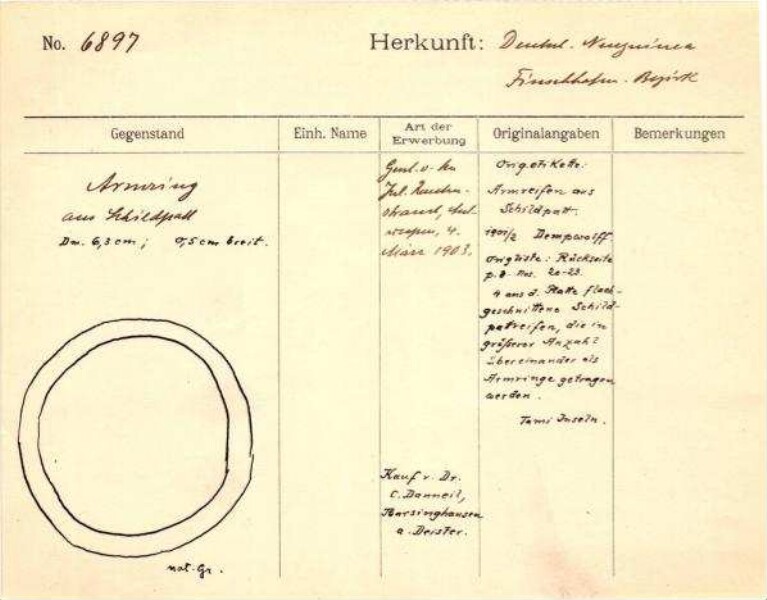 No. 6897
Herkunft: Deutsch. Neuguinea
Finschhafen-Bezirk
Gegenstand
Einh. Name
Art der Erwerbung
Originalangaben
Bemerkungen
Armring
aus Schildpatt
Dm. 6,3 cm; 0,5 cm breit.
nat. Gr.
Jul.
4.
März 1903.
Kauf v. Dr.
C. Danneil,
Barsinghausen
a. Deister.
Origetikette:
Armreifen aus
Schildpatt.
1901/2 Dempwolff.
Origliste: Rückseite
p. 8 Nos. 20-23.
4 aus d. Platte flach-
geschnittene Schild-
patreifen, die in
größerer Anzahl
übereinander als
Armringe getragen
werden.
Tami Inseln.